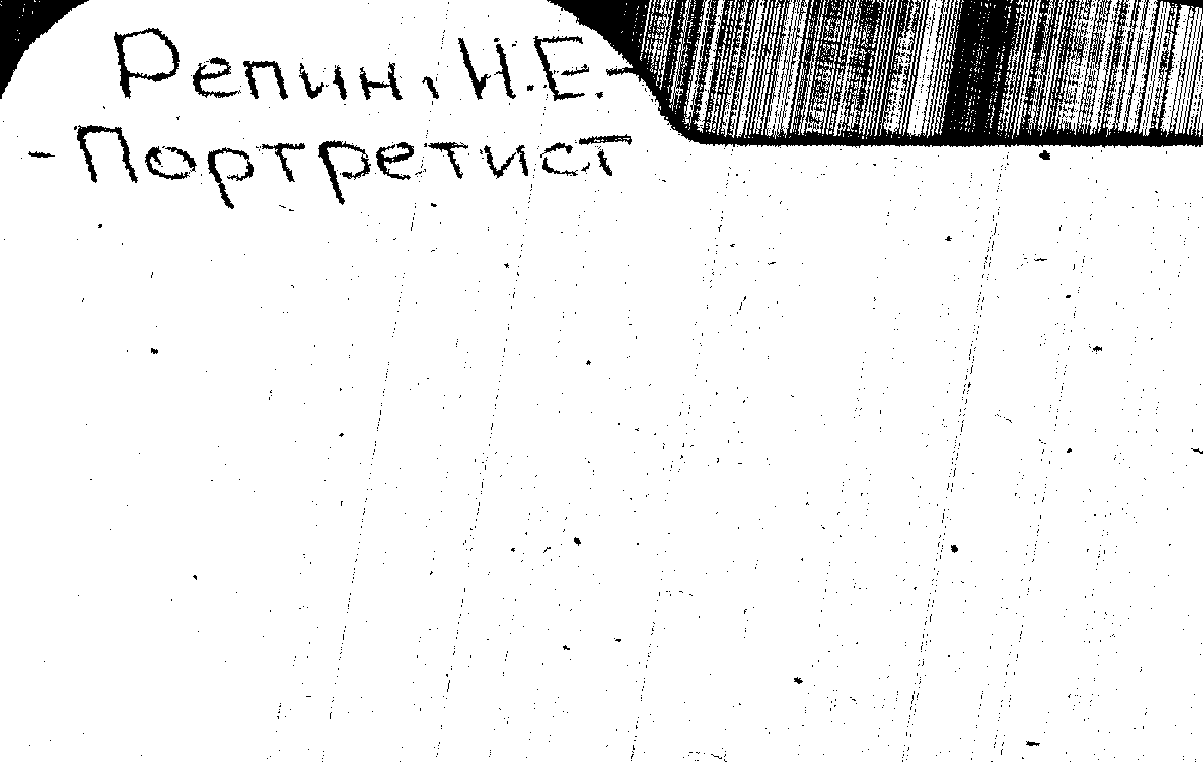 Репин, И.Е.-
- Портретист